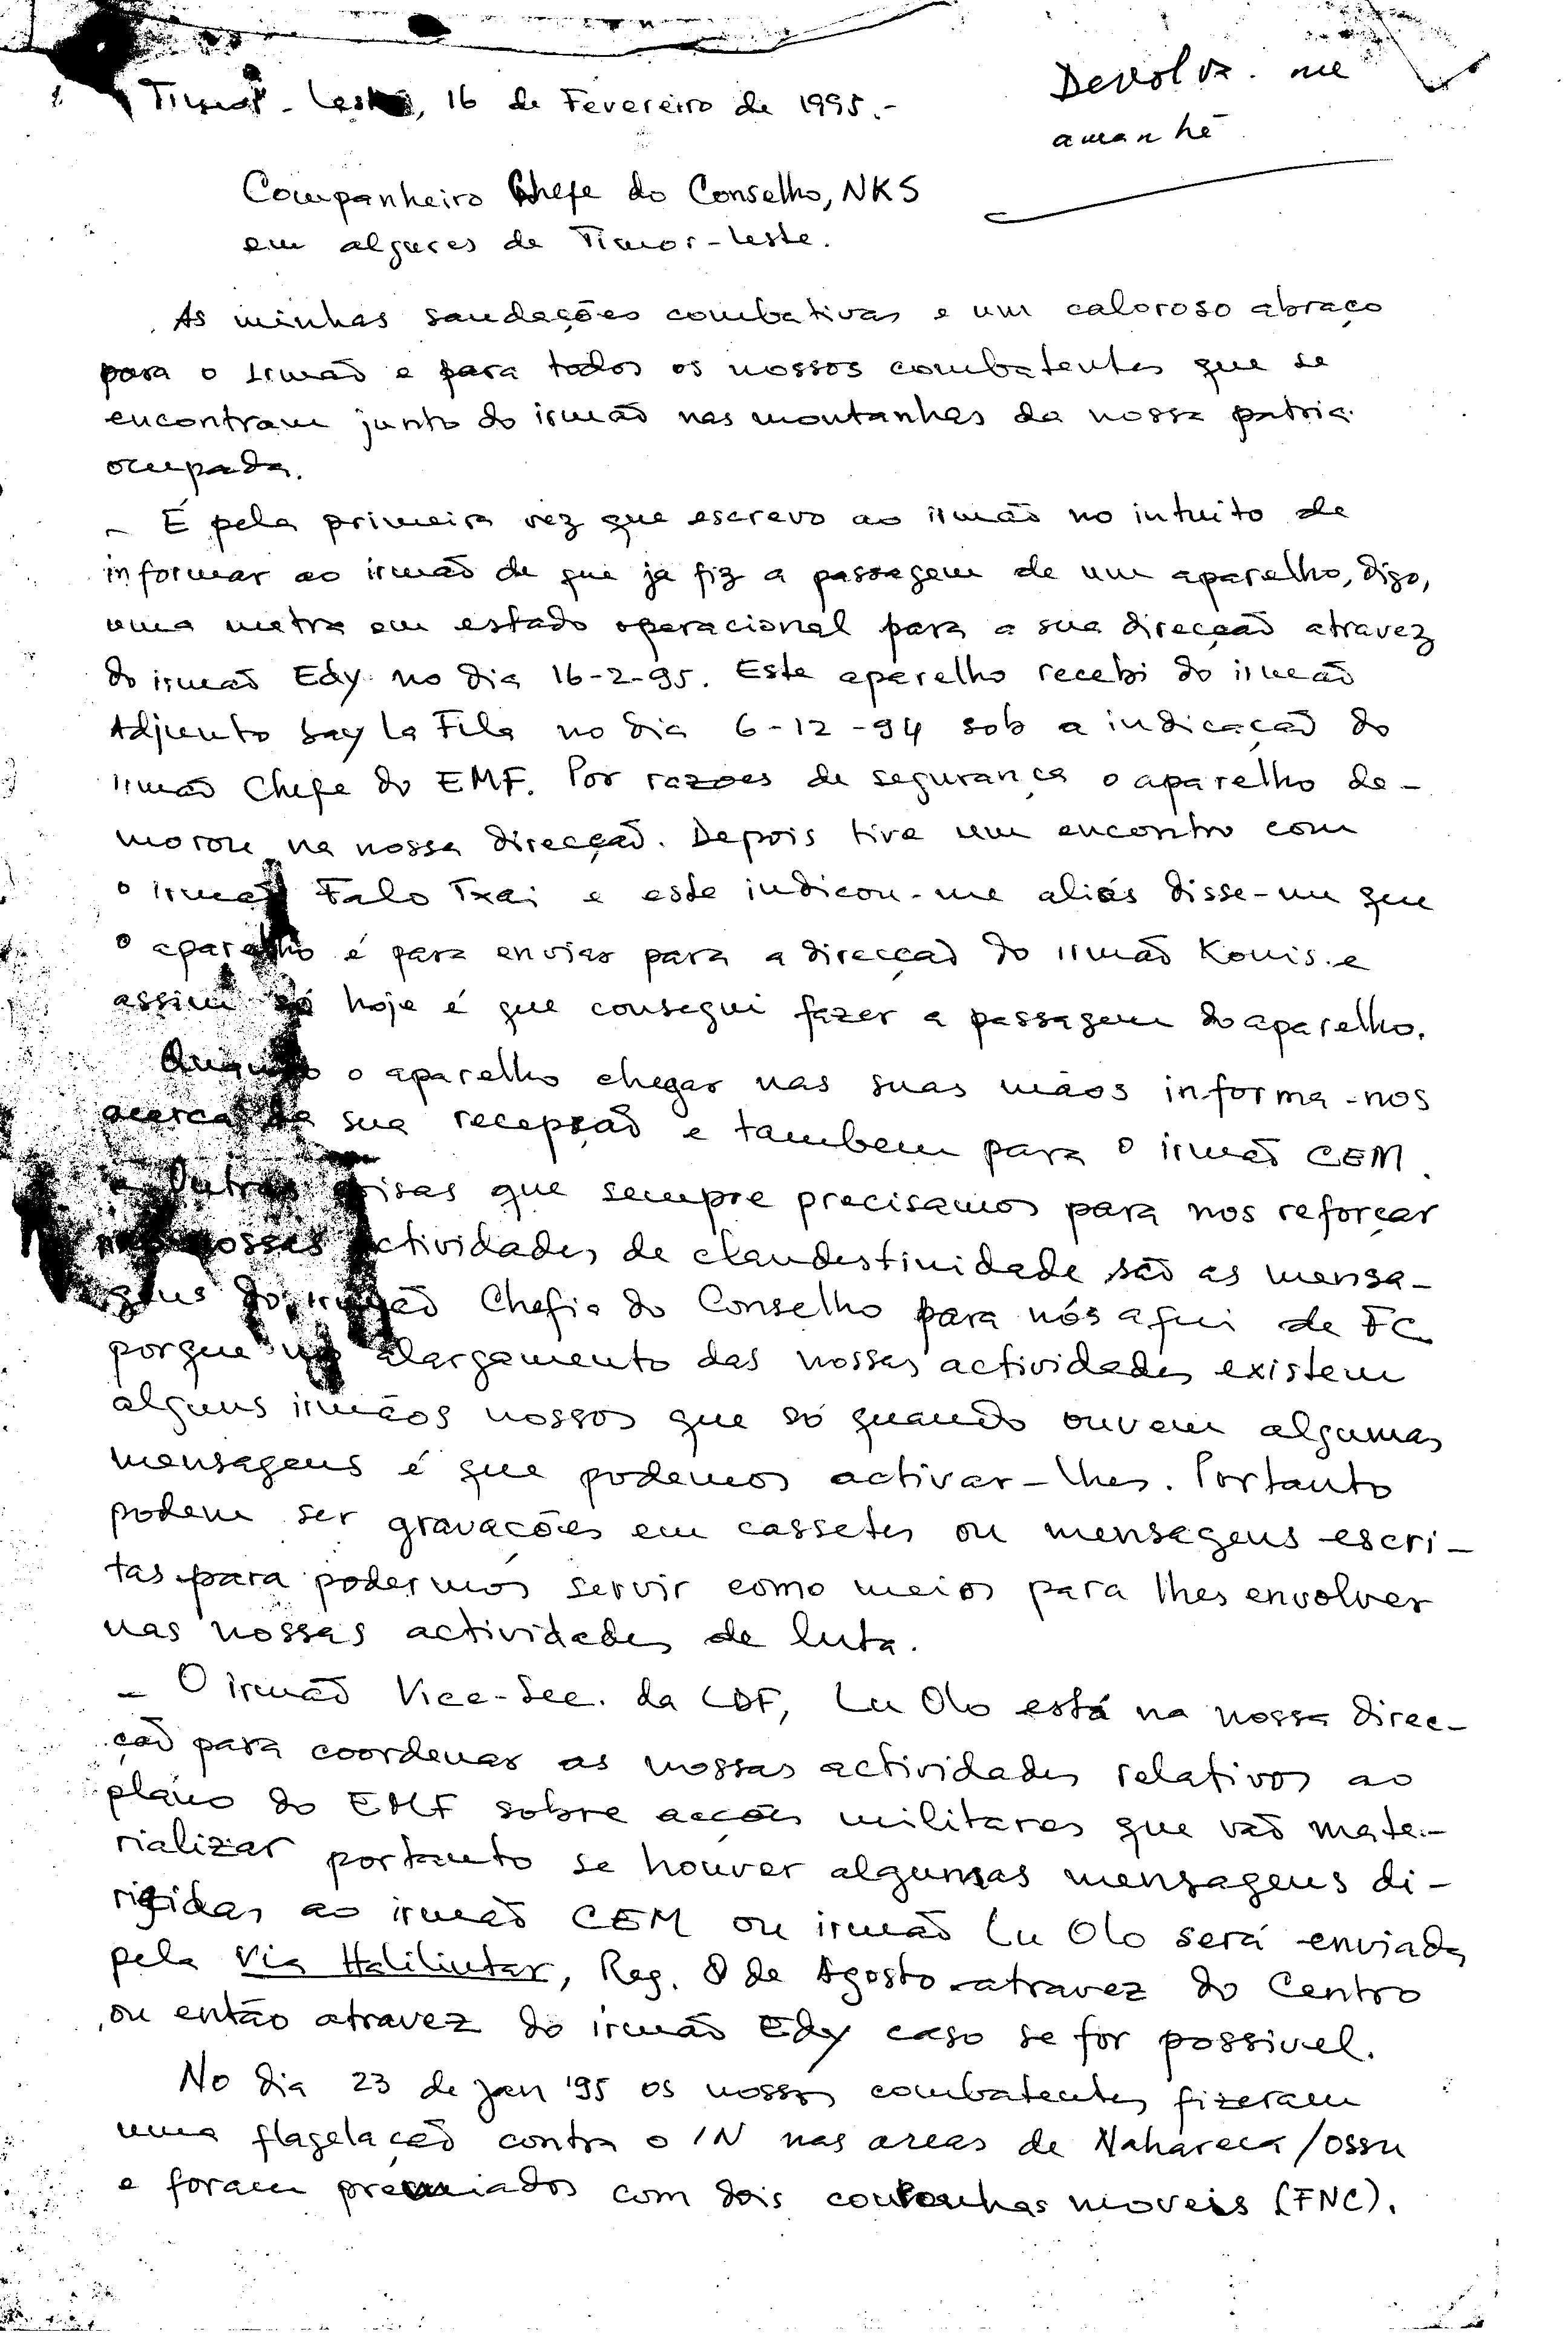 Timor-Leste, 16 de Fevereiro de 1995.-
Devolva-me
amanhã
Companheiro Chefe do Conselho, NKS
em algures de Timor-Leste.
As minhas saudações combativas e um caloroso abraço
para o irmão e para todos os nossos combatentes que se
encontram junto do irmão nas montanhas da nossa patria
ocupada.
- É pela primeira vez que escrevo ao irmão no intuito de
informar ao irmão de que já fiz a passagem de um aparelho, digo,
uma metra em estado operacional para a sua direcção atravez
do irmão Edy no dia 16-2-95. Este aparelho recebi do irmão
Adjunto Lay La Fila no dia 6-12-94 sob a indicação do
irmão Chefe do EMF. Por razões de segurança o aparelho de-
morou na nossa direcção. Depois tive um encontro com
o irmão Falo Txai e este indicou-me aliás disse-me que
o aparelho é para enviar para a direcção do irmão Konis e
assim só hoje é que consegui fazer a passagem do aparelho.
Quando o aparelho chegar nas suas mãos informa-nos
acerca da sua recepção e tambem para o irmão CEM.
- Outras coisas que sempre precisamos para nos reforçar
nas nossas actividades de clandestinidade são as mensa-
gens do irmão Chefia do Conselho para nós aqui de FC
porque no alargamento das nossas actividades existem
alguns irmãos nossos que só quando ouvem algumas
mensagens é que podemos activar-lhes. Portanto
podem ser gravações em cassetes ou mensagens escri-
tas para podermos servir como meios para lhes envolver
nas nossas actividades de luta.
- O irmão Vice-Sec. da CDF, Lu Olo está na nossa direc-
ção para coordenar as nossas actividades relativos ao
plano do EMF sobre acções militares que vão mate-
rializar portanto se houver algumas mensagens di-
rigidas ao irmão CEM ou irmão Lu Olo será enviada
pela Via Halilintar, Reg. 8 de Agosto atravez do Centro
ou então atravez do irmão Edy caso se for possivel.
No dia 23 de Jan '95 os nossos combatentes fizeram
uma flagelação contra o IN nas areas de Nahareca/Ossu
e foram premiados com dois moveis (FNC).